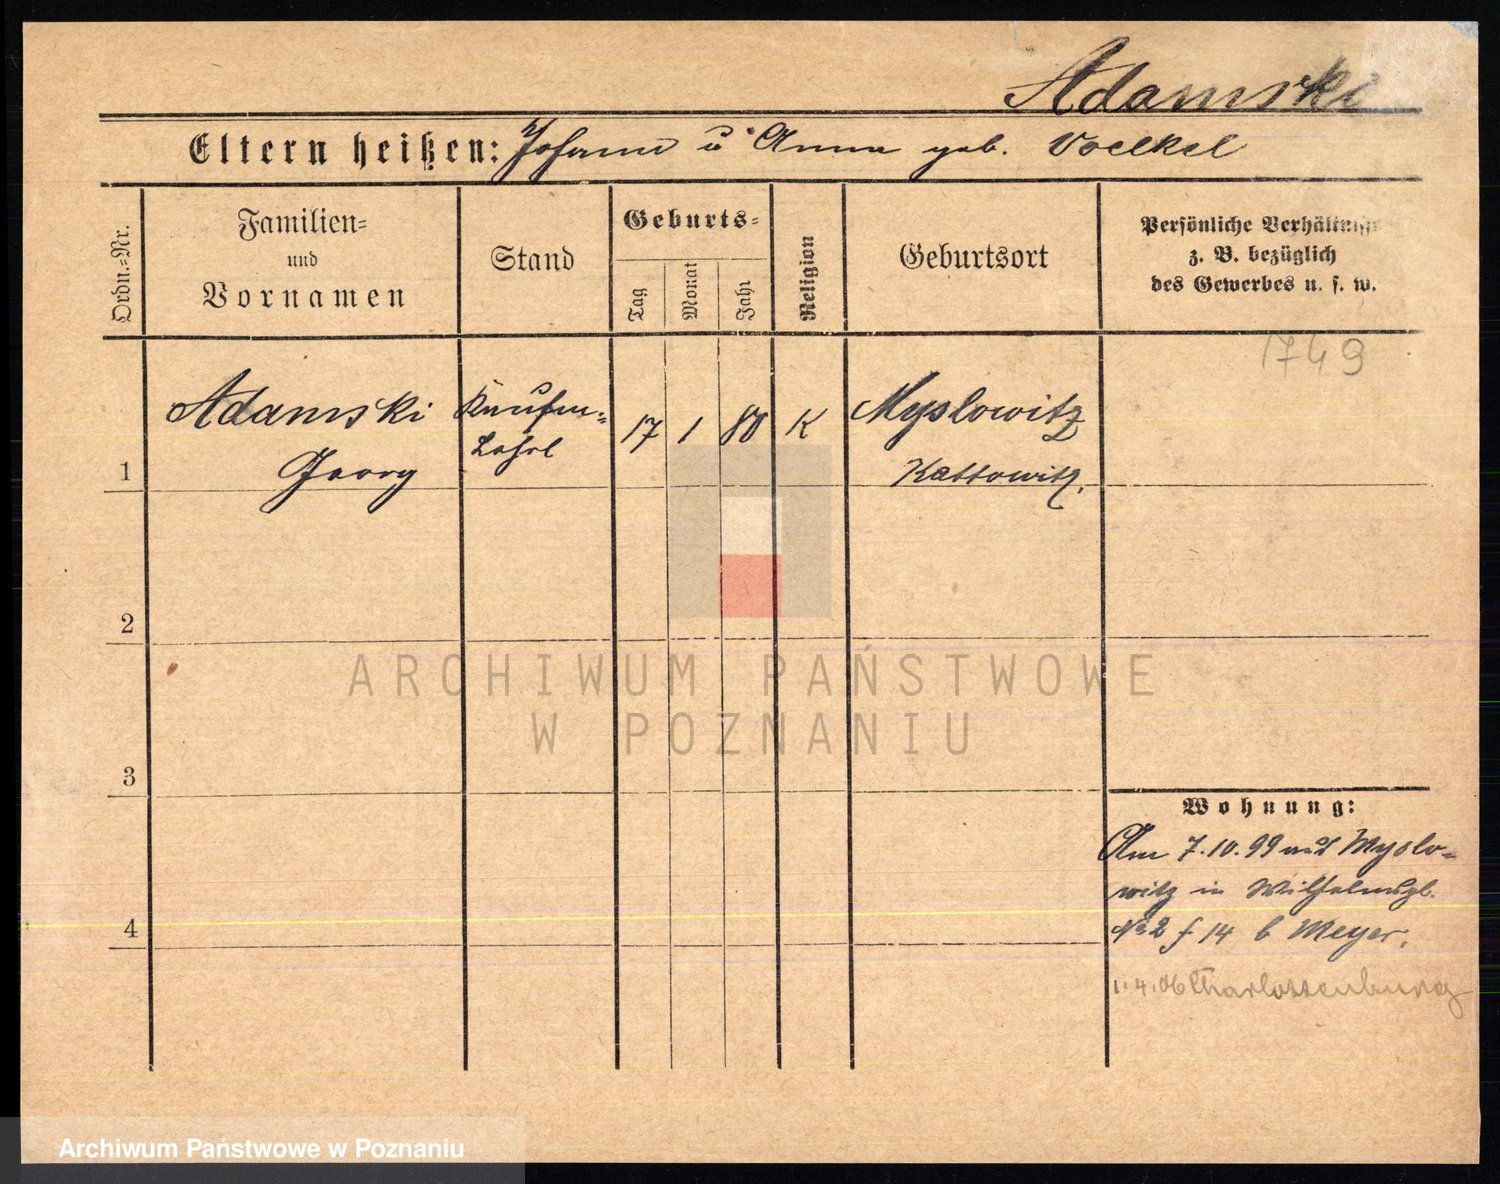 Adamski
Eltern heißen: Johann u. Anna geb. Voelkel
Ordn.=Nr.
Familien=
und
Vornamen
Stand
Geburts=
Tag
Monat
Jahr
Religion
Geburtsort
Persönliche Verhältnisse
z. B. bezüglich
des Gewerbes u. s. w.
1749
1
Adamski
Georg
Kaufm=
Lehrl
17
1
80
K
Myslowitz
Kattowitz.
2
3
4
Wohnung:
Am 7.10.99 aus Myslo-
witz in Wilhelmspl.
No 2 f 14 b Meyer.
1.4.06 Charlottenburg
ARCHIWUM PAŃSTWOWE
W POZNANIU
Archiwum Państwowe w Poznaniu